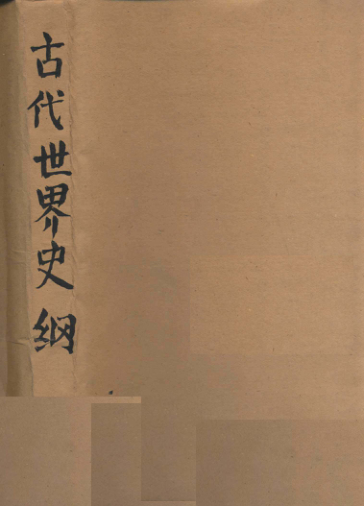 古代世界史纲